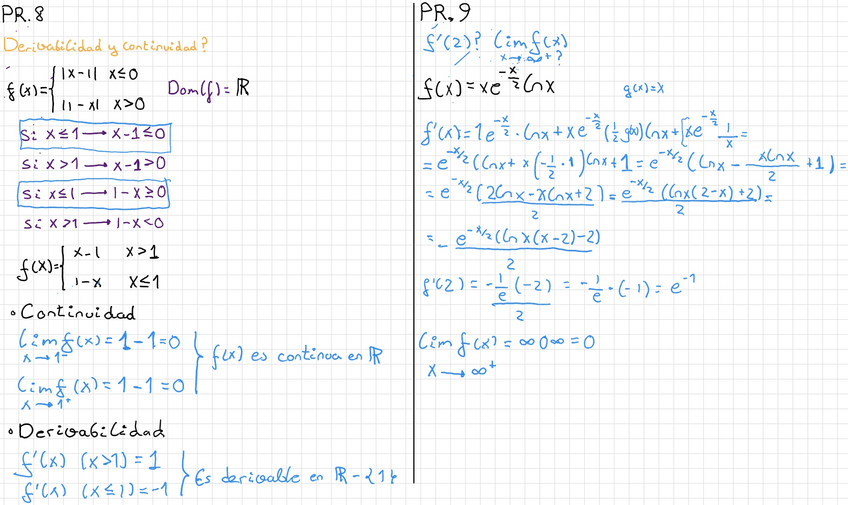 PR.8
Derivabilidad y continuidad?
f(x)={ |x-1| x≤0
|1-x| x>0
Dom(f)=ℝ
Si x≤1 → x-1≤0
Si x>1 → x-1>0
Si x≤1 → 1-x≥0
Si x>1 → 1-x<0
f(x)={ x-1 x>1
1-x x≤1
• Continuidad
Lim f(x)=1-1=0
x→1⁻
Lim f(x)=1-1=0
x→1⁺
} f(x) es continua en ℝ
• Derivabilidad
f'(x) (x>1)=1
f'(x) (x≤1)=-1
} Es derivable en ℝ-{1}
PR.9
f'(2)? Lim f(x)
x→∞⁺?
f(x)=xe^(-x/2) Lnx
g(x)=x
f'(x)=1e^(-x/2)·Lnx+xe^(-x/2)(1/2 g(x))Lnx+[xe^(-x/2) 1/x=
=e^(-x/2)(Lnx+x(-1/2·1)Lnx+1=e^(-x/2)(Lnx-xLnx/2+1)=
=e^(-x/2)(2Lnx-xLnx+2)/2=e^(-x/2)(Lnx(2-x)+2)/2=
=-e^(-x/2)(Lnx(x-2)-2)/2
f'(2)=-1/e(-2)/2=-1/e·(-1)=e⁻¹
Lim f(x)=∞0∞=0
x→∞⁺